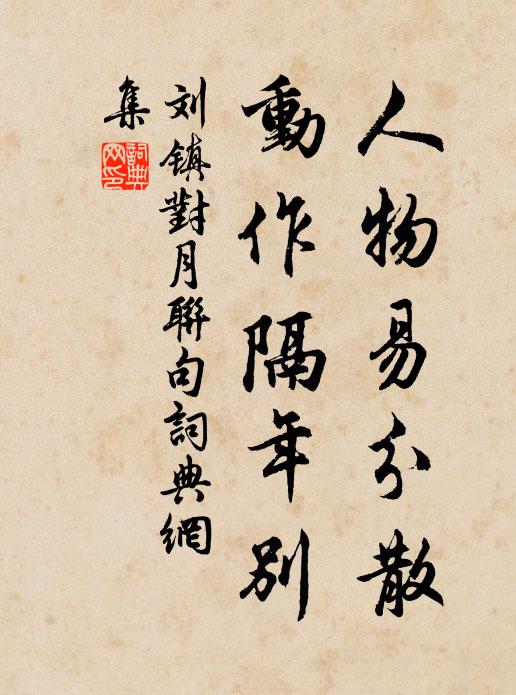 人物易分散
動作隔年別
刘镇對月聯句詞典網
集
詞典網印